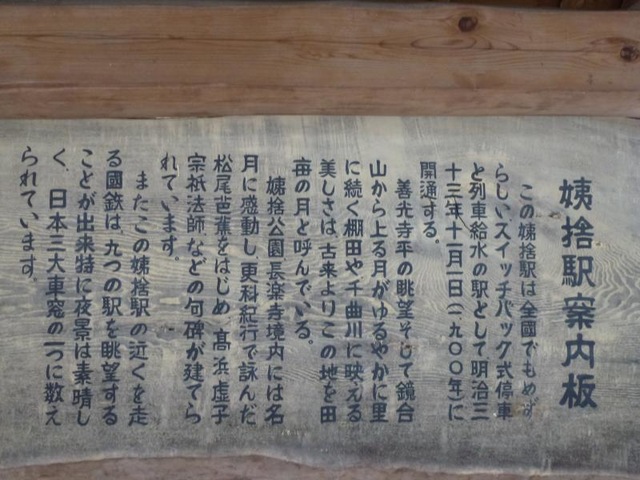 姨捨駅案内板
この姨捨駅は全国でもめず
らしいスイッチバック式停車
と列車給水の駅として明治三
十三年十一月一日(一、九〇〇年)に
開通する。
善光寺平の眺望そして鏡台
山から上る月がゆるやかに里
に続く棚田や千曲川に映える
美しさは、古来よりこの地を田
毎の月と呼んでいる。
姨捨公園、長楽寺境内には名
月に感動し、更科紀行で詠んだ
松尾芭蕉をはじめ、高浜虚子
宗祇法師などの句碑が建てら
れています。
またこの姨捨駅の近くを走
る國鉄は、九つの駅を眺望する
ことが出来特に夜景は素晴し
く、日本三大車窓の一つに数え
られています。